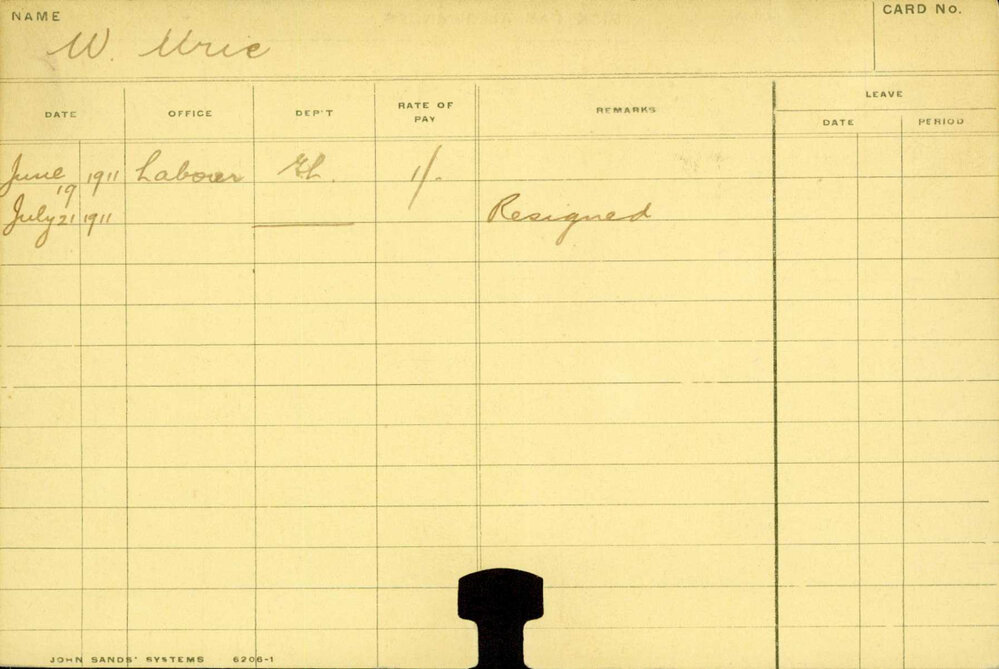 NAME
W. Uric
CARD No.
DATE OFFICE DEP'T RATE OF PAY REMARKS LEAVE
DATE PERIOD
June 19 1911 Labourer 1/-
July 21 1911 Resigned
JOHN SANDS' SYSTEMS 6206-1